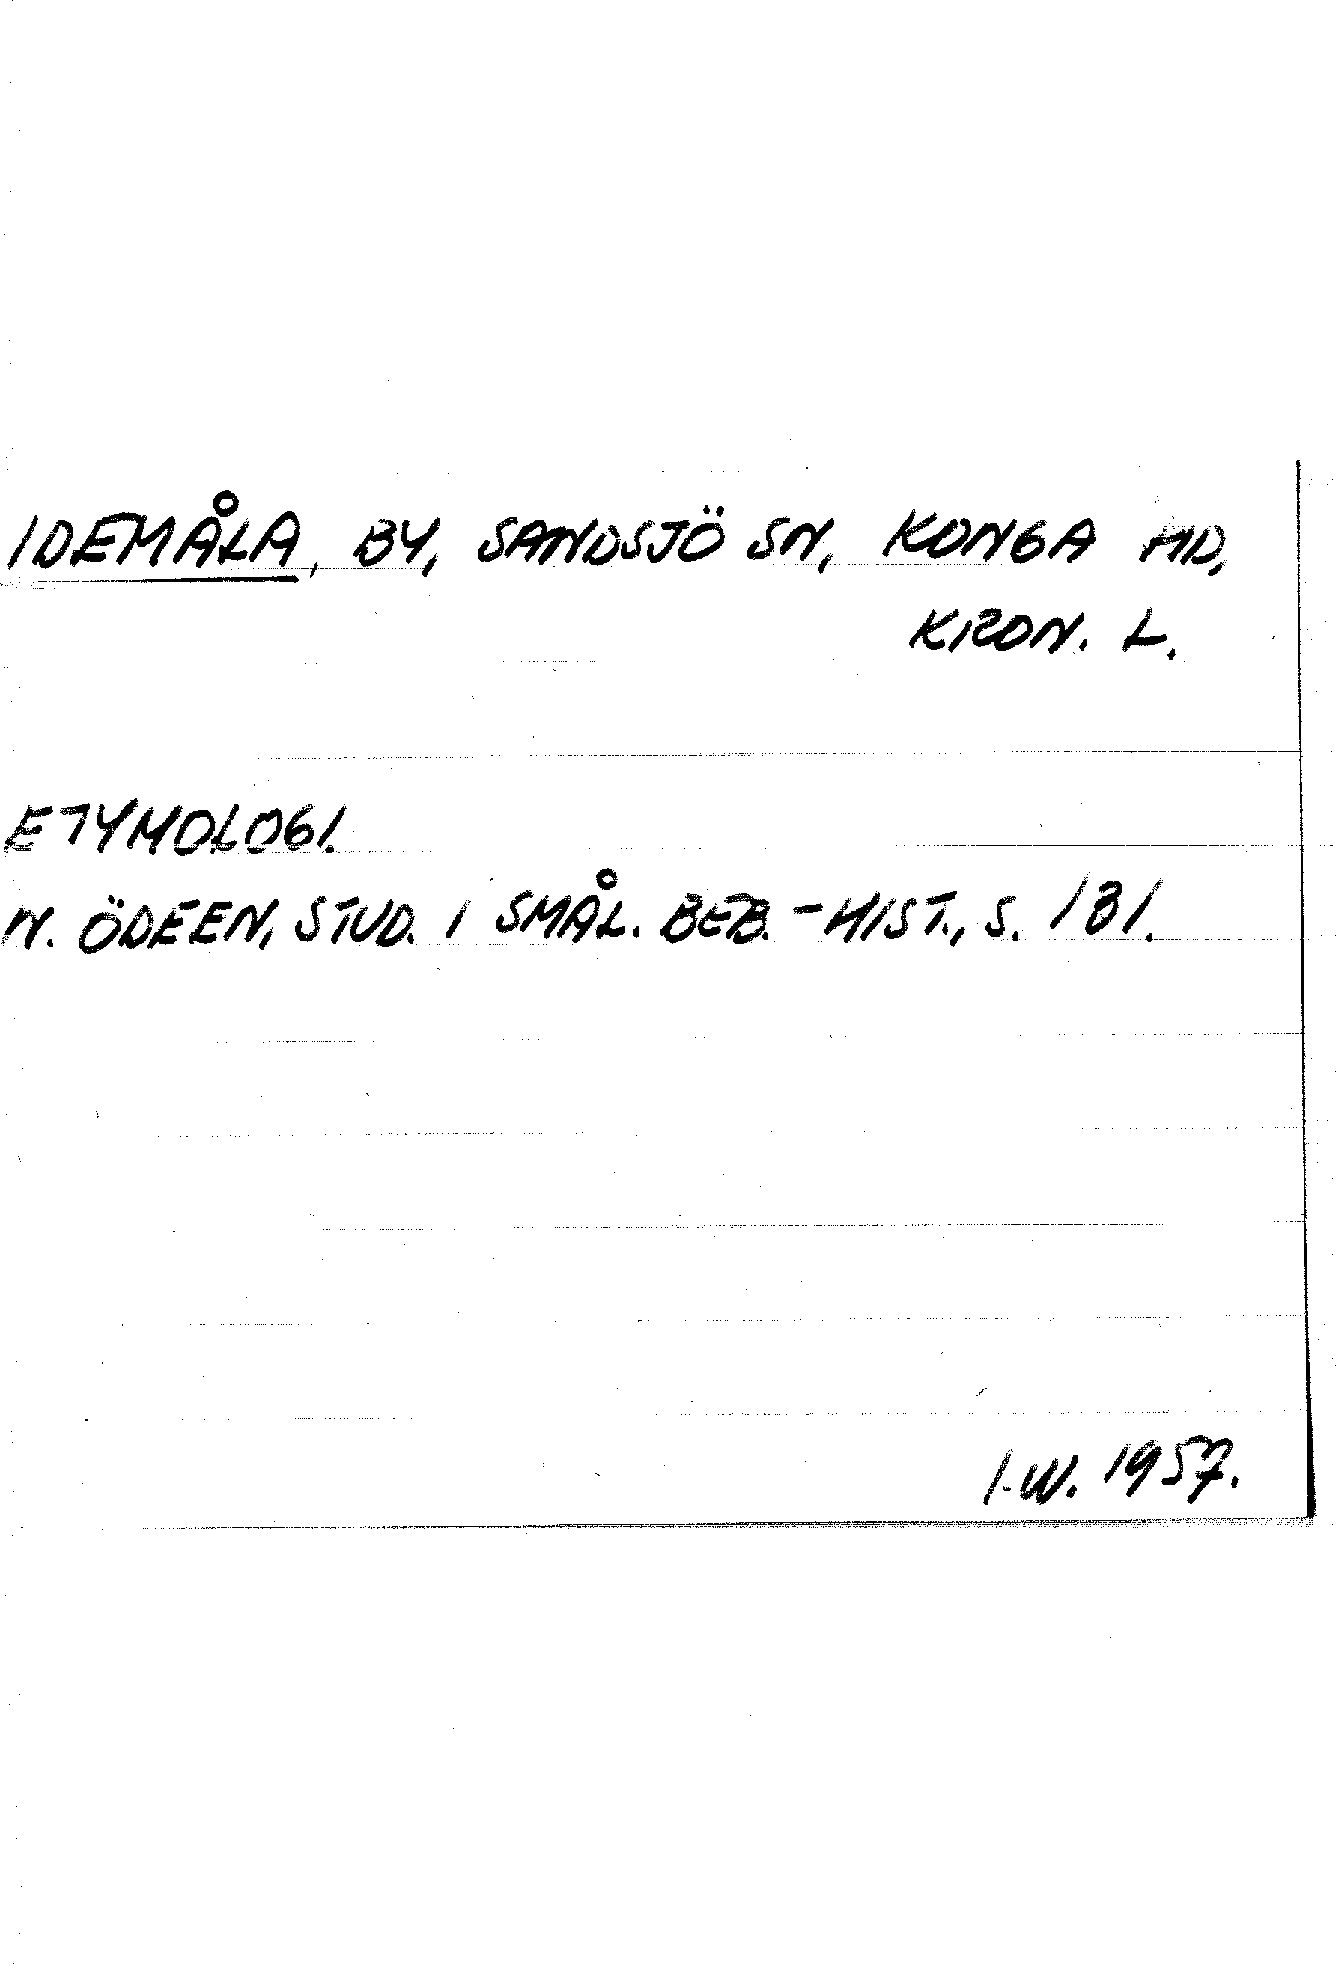 IDEMÅLA, BY, SANDSJÖ SN, KONGA HD,
KRON. L.
ETYMOLOGI.
N. ÖDEEN, STUD. I SMÅL. BEB.-HIST., S. 131.
I.W. 1957.